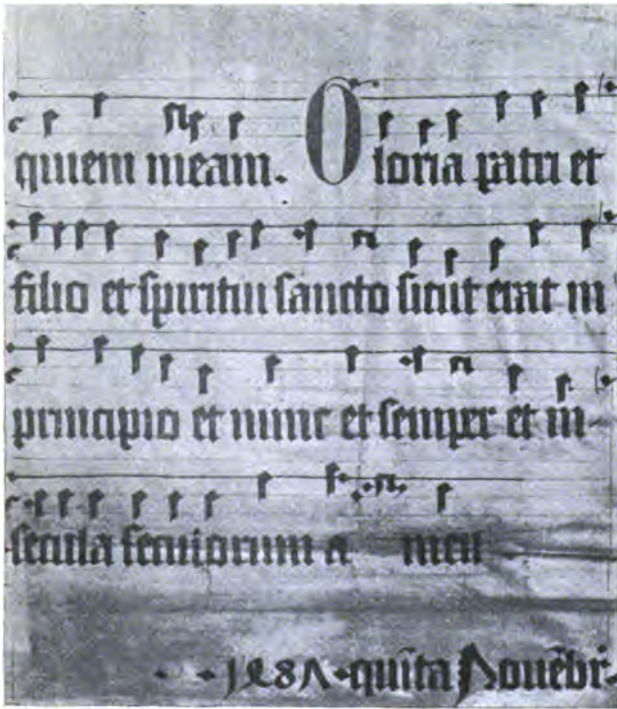 quiem meam. Gloria patri et
filio et spiritui sancto sicut erat in
principio et nunc et semper et in
secula seculorum a men
1487 quīta Nouēbr.